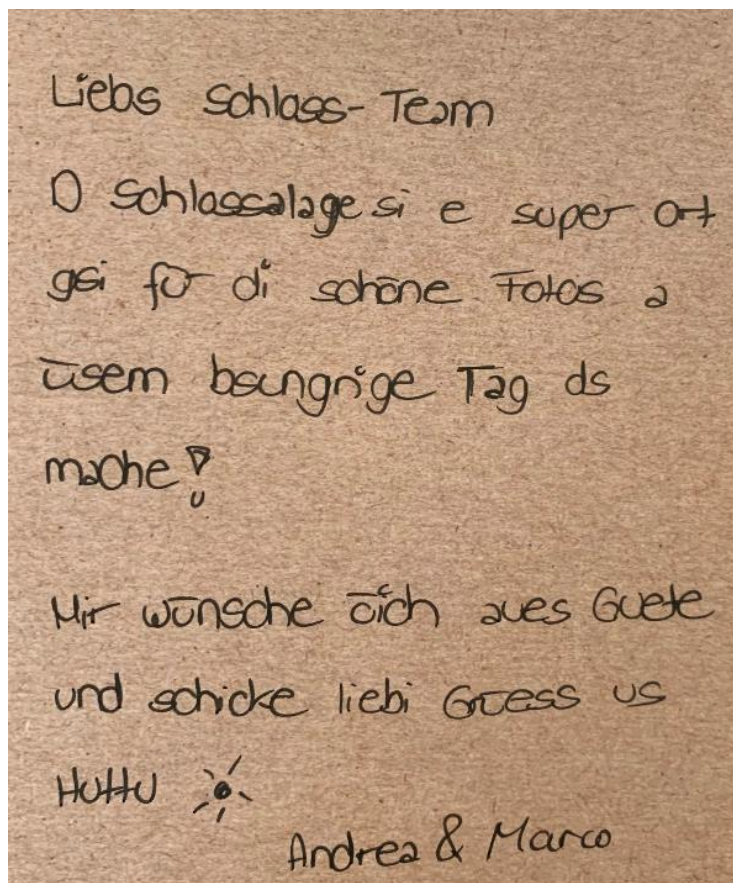 Liebs Schloss-Team
D Schlossalage si e super Ort
gsi für di schöne Fotos a
üsem bsungrige Tag ds
mache!
Mir wünsche öich aues Guete
und schicke liebi Grüess us
Huttu
Andrea & Marco